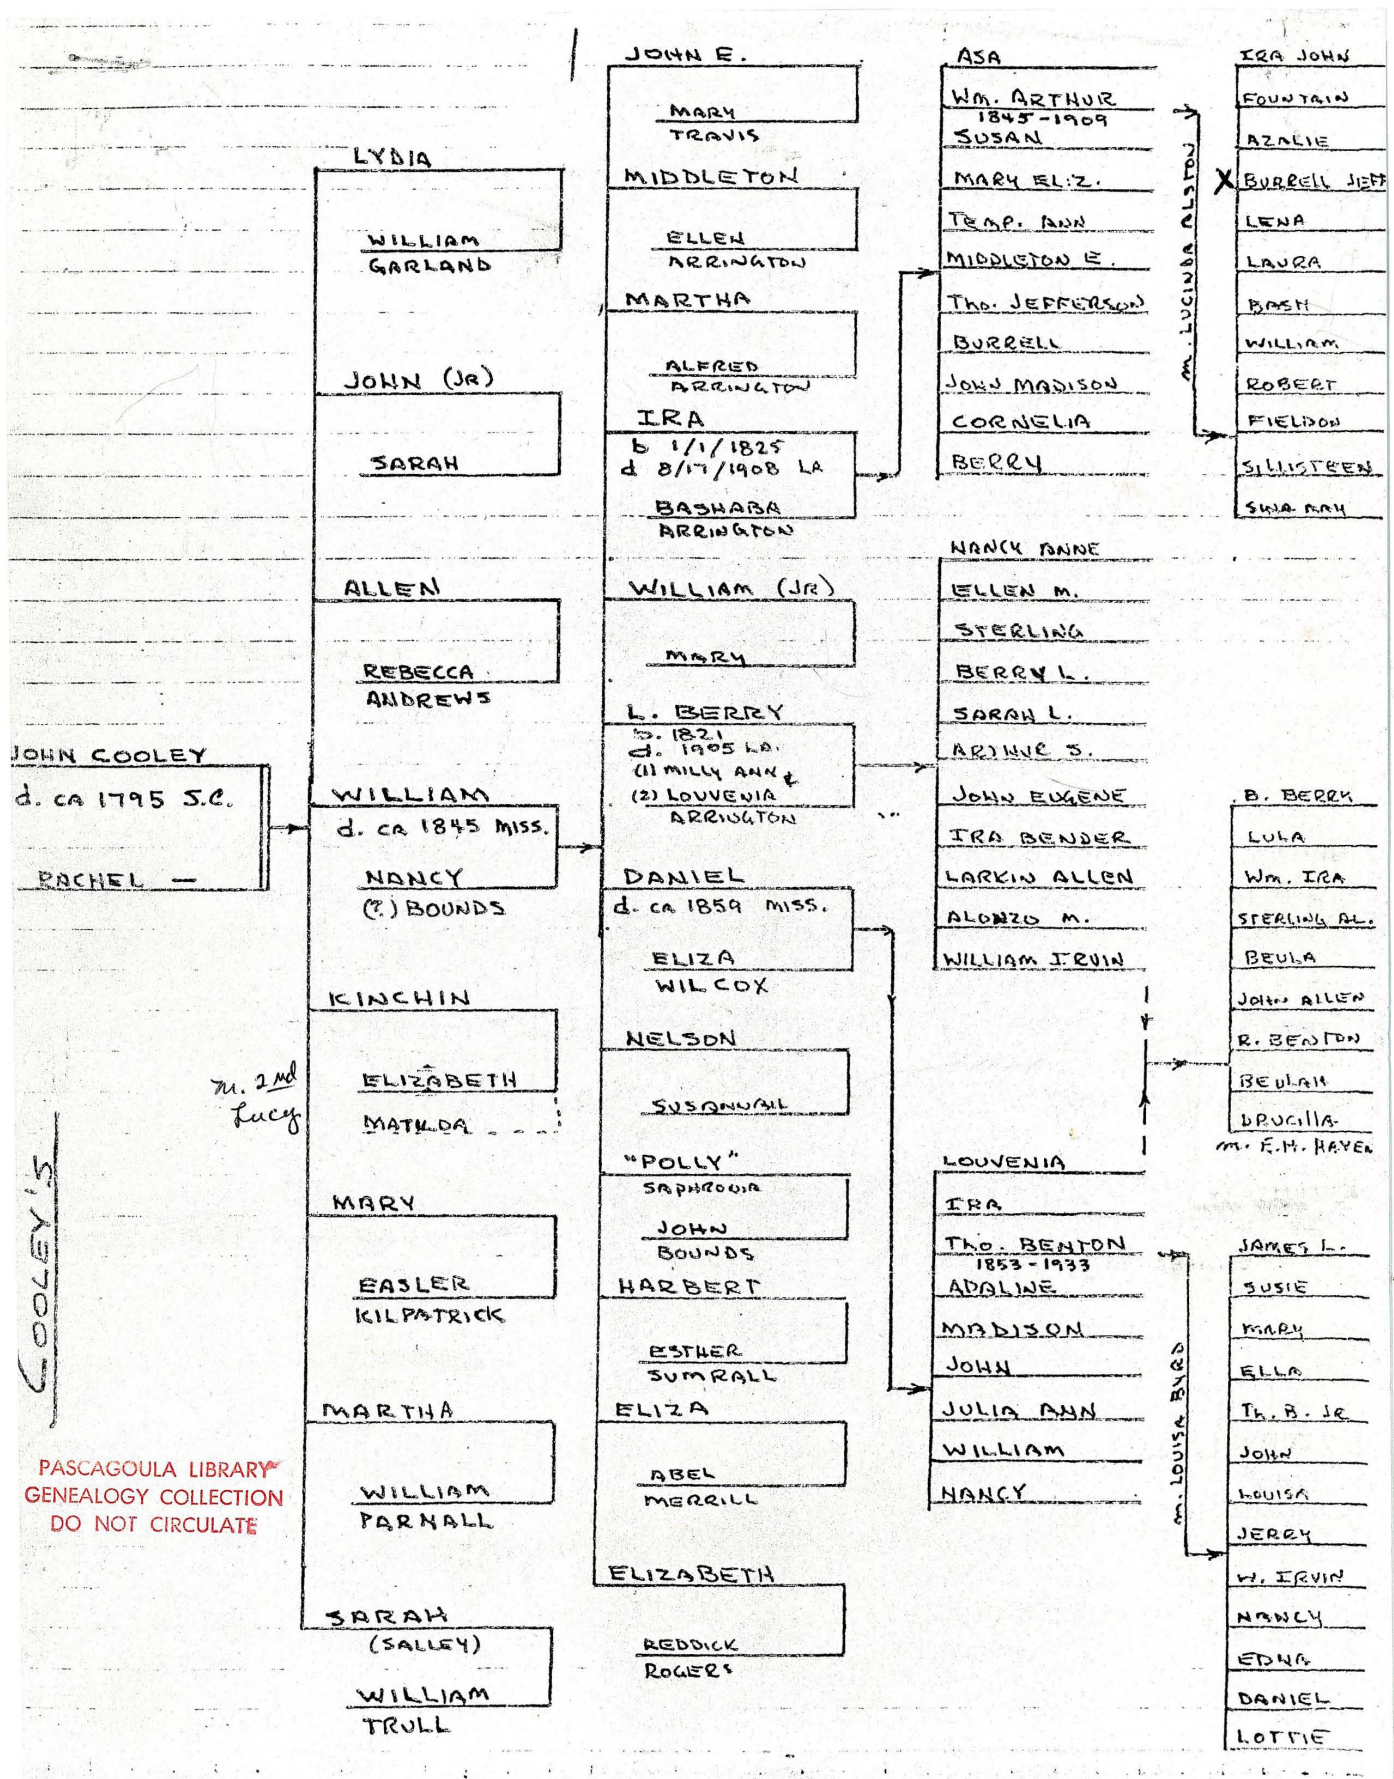 COOLEY'S
PASCAGOULA LIBRARY
GENEALOGY COLLECTION
DO NOT CIRCULATE
JOHN COOLEY
d. ca 1795 S.C.
RACHEL —
LYDIA
WILLIAM
GARLAND
JOHN (JR)
SARAH
ALLEN
REBECCA
ANDREWS
WILLIAM
d. ca 1845 MISS.
NANCY
(?) BOUNDS
KINCHIN
m. 2nd
Lucy
ELIZABETH
MATILDA
MARY
EASLER
KILPATRICK
MARTHA
WILLIAM
PARNALL
SARAH
(SALLEY)
WILLIAM
TRULL
JOHN E.
MARY
TRAVIS
MIDDLETON
ELLEN
ARRINGTON
MARTHA
ALFRED
ARRINGTON
IRA
b 1/1/1825
d 8/17/1908 LA
BASHABA
ARRINGTON
WILLIAM (JR)
MARY
L. BERRY
b. 1821
d. 1905 LA.
(1) MILLY ANN &
(2) LOUVENIA
ARRINGTON
DANIEL
d. ca 1859 MISS.
ELIZA
WILCOX
NELSON
SUSANNAH
"POLLY"
SAPHRONIA
JOHN
BOUNDS
HARBERT
ESTHER
SUMRALL
ELIZA
ABEL
MERRILL
ELIZABETH
REDDICK
ROGERS
ASA
Wm. ARTHUR
1845-1909
SUSAN
MARY ELIZ.
TEMP. ANN
MIDDLETON E.
Tho. JEFFERSON
BURRELL
JOHN MADISON
CORNELIA
BERRY
NANCY ANNE
ELLEN M.
STERLING
BERRY L.
SARAH L.
ARTHUR S.
JOHN EUGENE
IRA BENDER
LARKIN ALLEN
ALONZO M.
WILLIAM IRVIN
LOUVENIA
IRA
Tho. BENTON
1853-1933
ADALINE
MADISON
JOHN
JULIA ANN
WILLIAM
NANCY
m. LUCINDA ALSTON
IRA JOHN
FOUNTAIN
AZALIE
X BURRELL JEFF
LENA
LAURA
BASH
WILLIAM
ROBERT
FIELDON
SILLISTEEN
B. BERRY
LULA
Wm. IRA
STERLING AL.
BEULA
JOHN ALLEN
R. BENTON
BEULAH
DRUCILLA
m. E.H. HAVEN
m. LOUISA BYRD
JAMES L.
SUSIE
MARY
ELLA
Th. B. JR
JOHN
LOUISA
JERRY
W. IRVIN
NANCY
EDNA
DANIEL
LOTTIE